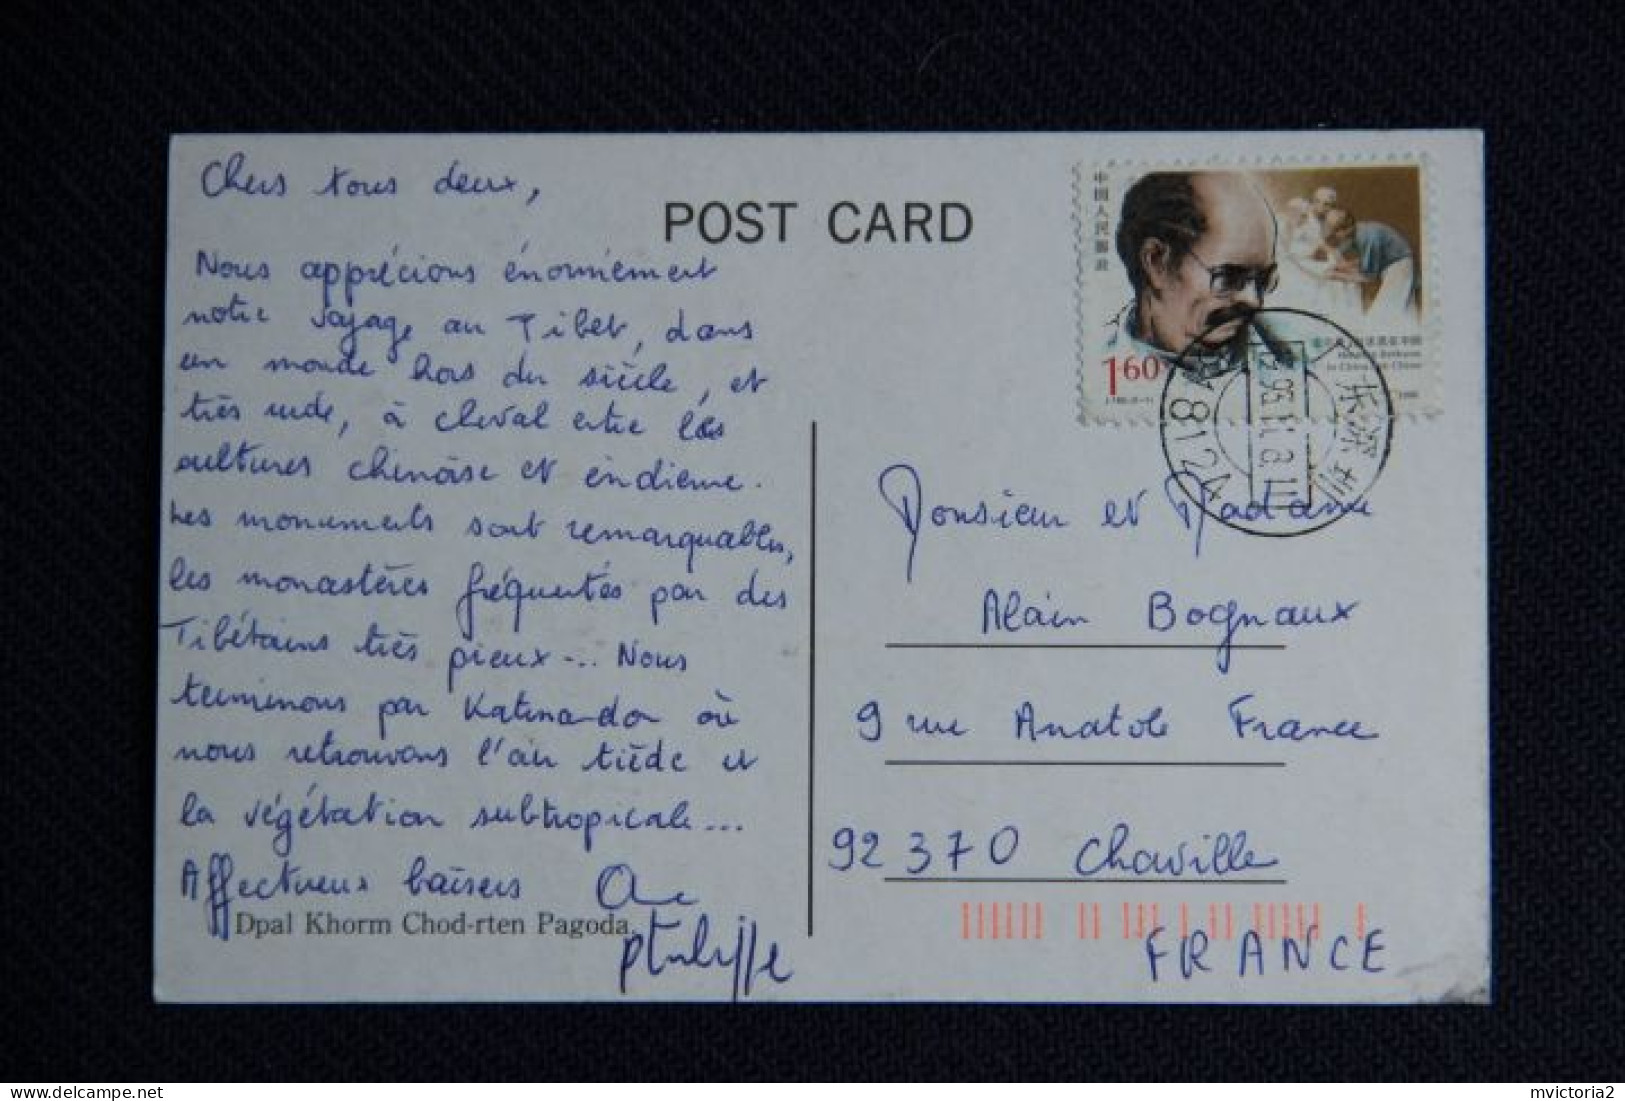 Chers tous deux,
Nous apprécions énormément
notre voyage au Tibet, dans
un monde hors du siècle, et
très rude, à cheval entre les
cultures chinoise et indienne.
Les monuments sont remarquables,
les monastères fréquentés par des
Tibétains très pieux... Nous
terminons par Katmandou où
nous retrouvons l'air tiède et
la végétation subtropicale...
Affectueux baisers
Philippe
Dpal Khorm Chod-rten Pagoda.
POST CARD
中国人民邮政
1.60
8124
Monsieur et Madame
Alain Bognaux
9 rue Anatole France
92370 Chaville
FRANCE
mvictoria2